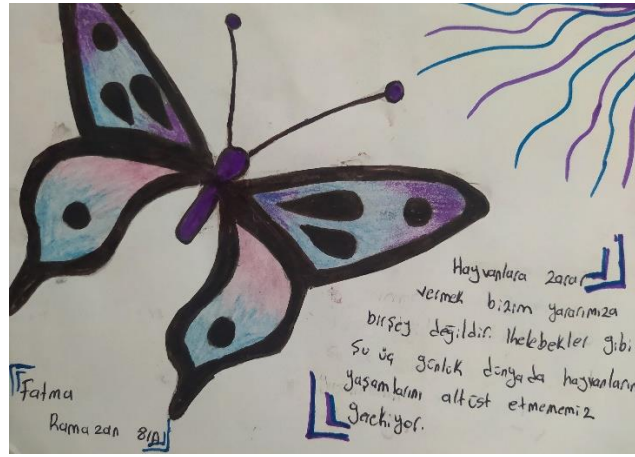 Hayvanlara zarar
vermek bizim yararımıza
birşey değildir. Khelebekler gibi
Şu üç günlük dünyada hayvanların
yaşamlarını altüst etmememiz
gerekiyor.
Fatma
Ramazan 8/A